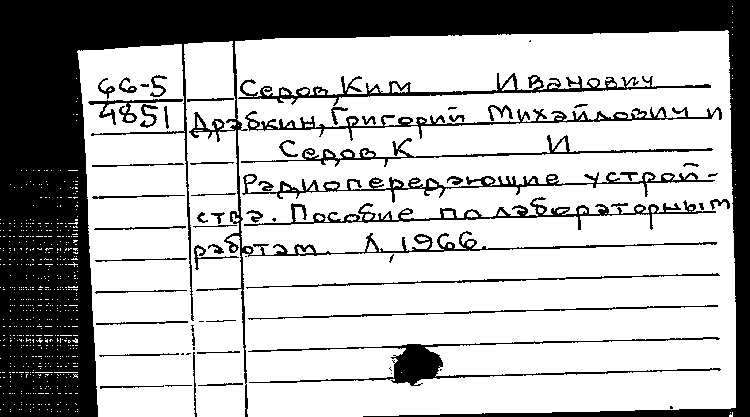 66-5 Седов, Ким Иванович
4851 Дрэбкин, Григорий Михайлович и
Седов, К И
Радиопередающие устрой-
ства. Пособие по лабораторным
работам. Л, 1966.